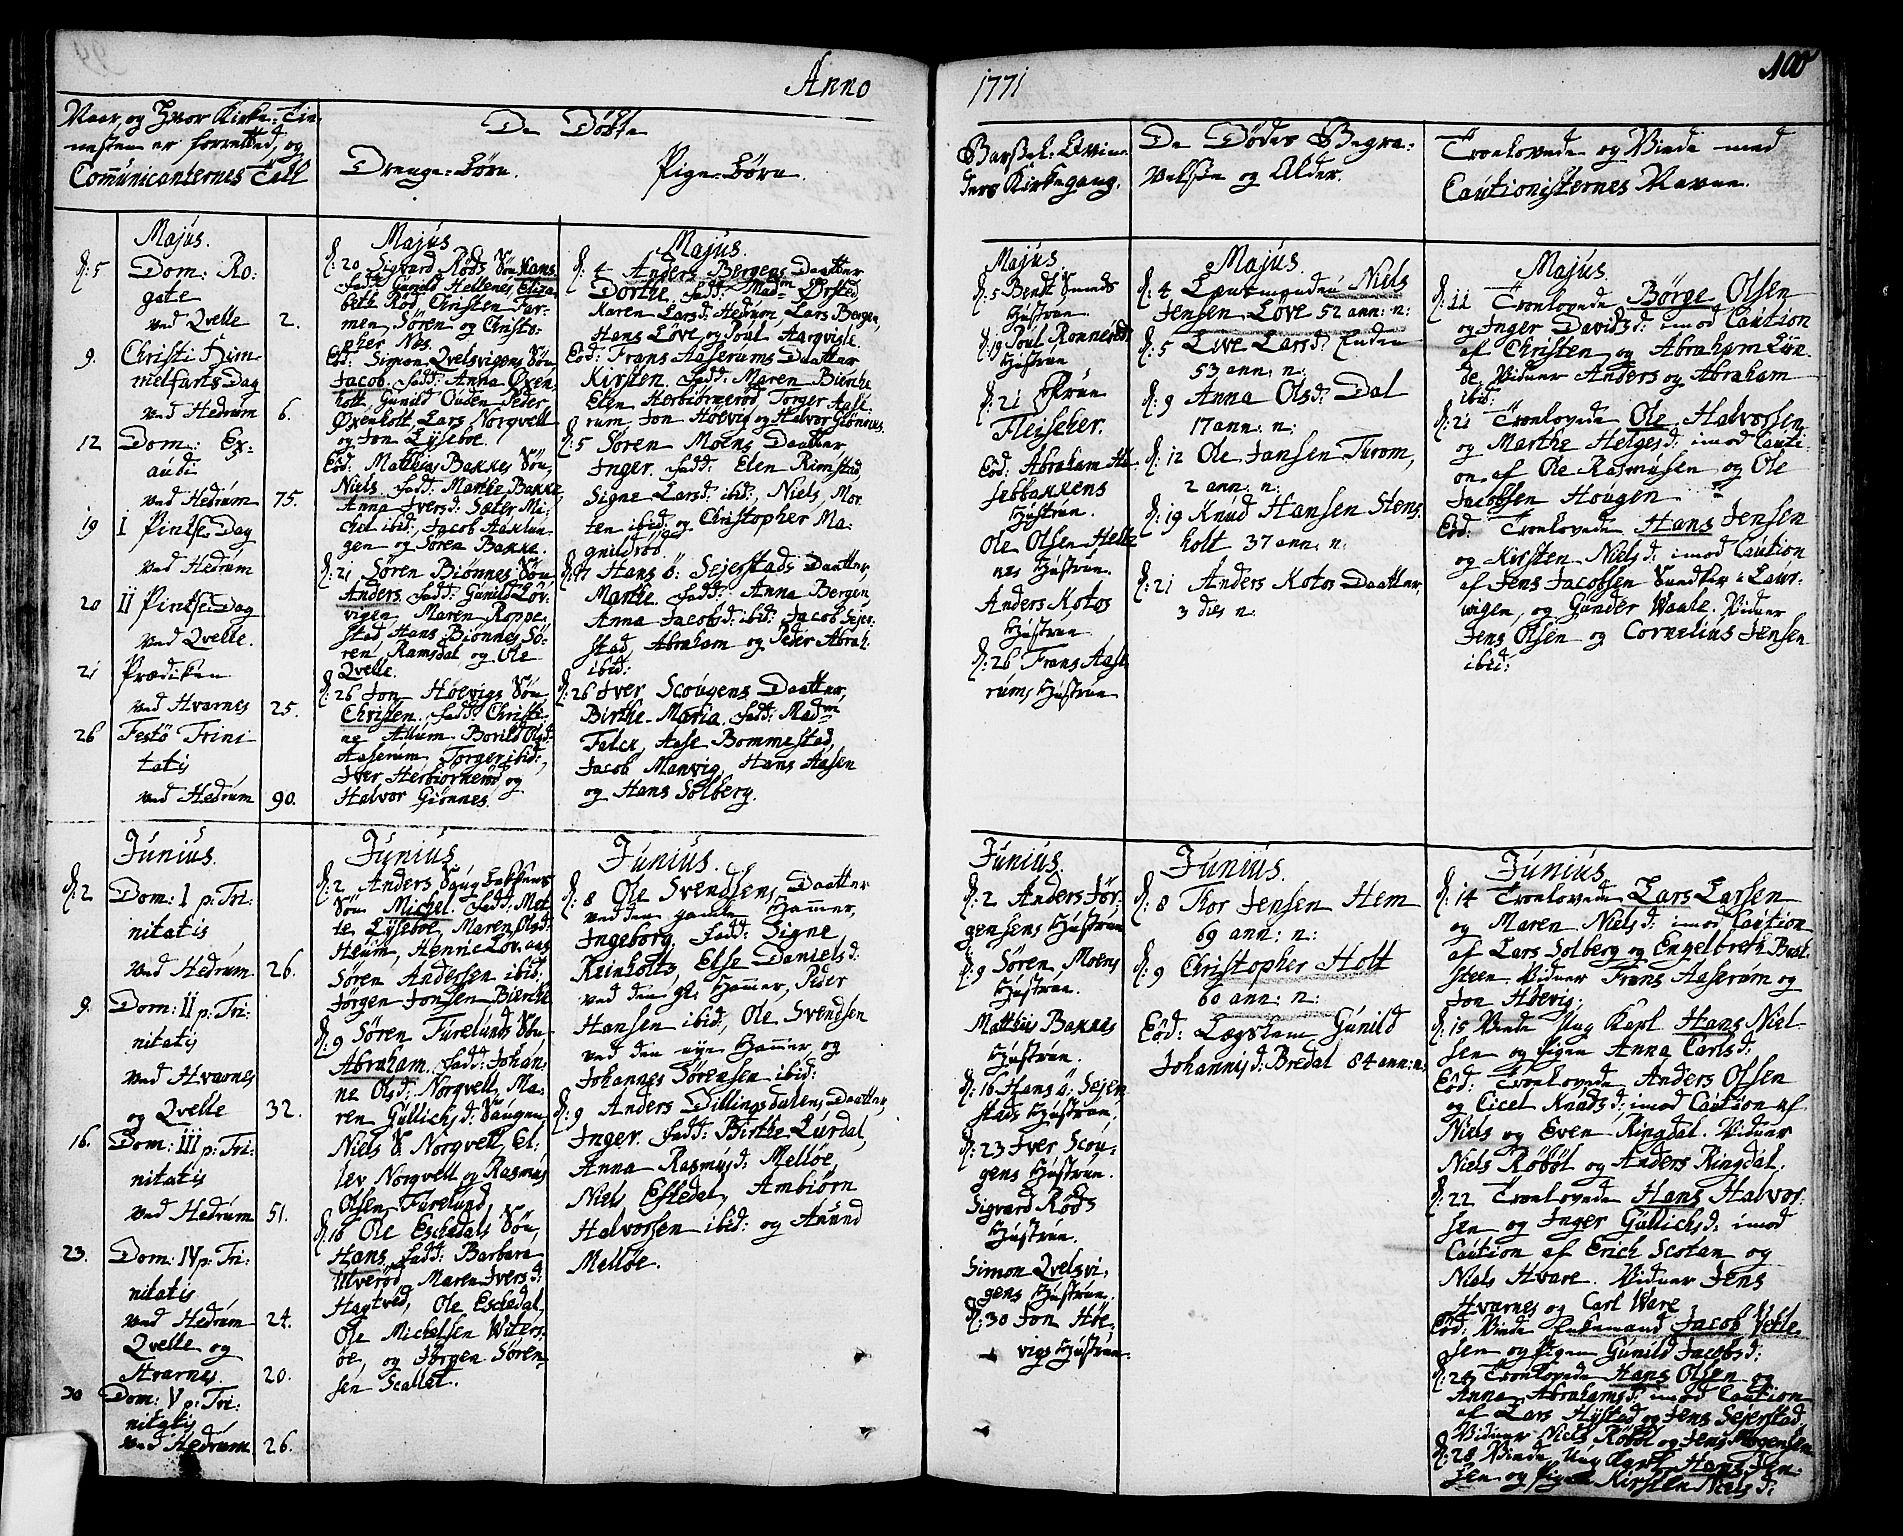 Anno
1771
100
Naar, og Hvor Kirke-Tie-
nesten er forretted, og
Communicanternes Tall
De Døbte
Drenge-Børn.
Pige-Børn.
Barsel-Qvin-
ders Kirkegang.
De Dødes Begra-
velse og Alder.
Troelovede og Viede med
Cautionisternes Navne.
Majus.
D: 5 Dom: Ro-
gate
ved Qvelle 2.
9. Christi Him-
melfarts Dag
ved Hedrum 6.
12 Dom: Ex-
audi
ved Hedrum 75.
19 I Pintse Dag
ved Hedrum
20 II Pintse Dag
ved Qvelle.
21 Prædiken
ved Hvarnes 25.
26 Festo Trini
tatis
ved Hedrum 90.
Majus.
D: 20 Sigvard Røds Søn Hans.
Fadd: Gunild Hellenes, Eliza-
beth Rød, Christen Far-
men, Søren og Christo-
pher Nes.
Eod: Simon Qvelsvigens Søn
Jacob. Fadd: Anna Øxen-
holt, Gunild Ouden, Peder
Øxenholt, Lars Norqvell
og Jon Lyseboe.
Eod: Matthias Bakkes Søn,
Niels. Fadd: Marthe Bakke,
Anna Iversd: Sæter, Mi-
chel ibid:, Jacob Aaklun-
gen og Søren Bakke.
D: 21 Søren Biønnes Søn,
Anders. Fadd: Gunild Løv-
vigen, Maren Roppe-
stad, Hans Biønnes, Sø-
ren Ramsdal og Ole
Qvelle.
D: 26 Jon Høevigs Søn
Christen. Fadd: Christi-
ne Allum, Borild Olsd:
Aaserum, Torger ibid:,
Iver Herbiørnerød og
Halvor Giønnes.
Majus.
D: 4 Anders Bergens Daatter
Dorthe. Fadd: Madm Ørsted,
Karen Larsd: Hedrum, Lars Bergen,
Hans Løve og Poul Aarqvisle.
Eod: Frans Aaserums Daatter
Kirsten. Fadd: Maren Bierke
Elen Herbiørnerød, Torger Aase-
rum, Jon Høevig og Halvor Giønnes.
D: 5 Søren Moens Daatter,
Inger. Fadd: Elen Rimstad,
Signe Larsd: ibid:, Niels, Mor-
ten ibid: og Christopher Ma-
gnildrød.
D: 17 Hans Ø: Sejerstads Daatter,
Marthe. Fadd: Anna Bergen
Anna Jacobsd: ibid: Jacob Sejer-
stad, Abraham og Peder Abrah:
ibid:
D: 26 Iver Scougens Daatter,
Birthe-Maria. Fadd: Madm
Falck, Aase Bommestad,
Jacob Manvig, Hans Aasen
og Hans Solberg.
Majus.
D: 5 Bendt Sunds
Hustrue
D: 19 Poul Ronnerøds
Hustrue
D: 21 Frue
Fleischer.
Eod: Abraham Ha-
sebbakkens
Hustrue.
Ole Olsen Helle
nes Hustrue.
Anders Kotos
Hustrue
D: 26 Frans Aase-
rums Hustrue
Majus.
D: 4 Lænsmanden Niels
Jensen Løve 52 ann: n:
D: 5 Live Larsd: Enden
53 ann: n:
D: 9 Anna Olsd: Dal
17 ann: n:
D: 12 Ole Jansen Throm,
2 ann: n:
D: 19 Knud Hansen Stens-
holt 37 ann: n:
D: 21 Anders Kotos Daatter,
3 dies n:
Majus.
D: 11 Troelovede Børge Olsen
og Inger Davidsd: imod Caution
af Christen og Abraham Lun-
de. Vidner Anders og Abraham
ibid:
D: 21 Troelovede Ole Halvorsen
og Marthe Helgesd: imod Cauti-
on af Ole Rasmusen og Ole
Jacobsen Hougen
Eod: Troelovede Hans Jensen
og Kirsten Nielsd: imod Caution
af Jens Jacobsen Snedker i Laur-
vigen, og Gunder Waale. Vidner
Jens Olsen og Cornelius Jensen
ibid:
Junius.
D: 2 Dom: I p: Tri-
nitatis
ved Hedrum 26.
9. Dom: II p: Tri-
nitatis
ved Hvarnes
og Qvelle 32.
16. Dom: III p: Tri-
nitatis
ved Hedrum 51.
23. Dom: IV p: Tri-
nitatis
ved Hedrum 24.
Qvelle og
Hvarnes. 20.
30 Dom: V p: Tri-
nitatis
ved Hedrum 26.
Junius.
D: 2 Anders Saugbakkens
Søn Michel. Fadd: Met-
te Lyseboe, Maren Olsd:
Heium, Henric Lovaas,
Søren Andersen ibid:,
Jørgen Jonsen Bierke
D: 9 Søren Furelunds Søn
Abraham. Fadd: Johan-
ne Olsd: Norqvell, Ma-
ren Gullichsd: Saugen
Niels S Norqvell, El-
lev Norqvell og Rasmus
Olsen Furelund.
D: 16 Ole Eschedals Søn,
Hans. Fadd: Barbara
Ulverød, Maren Iversd:
Hagtved, Ole Eschedal,
Ole Michelsen Witers-
øe, og Jørgen Søren-
sen Scallet.
Junius.
D: 8 Ole Svendsens Daatter
ved den gamle Hammer,
Ingeborg. Fadd: Signe
Reinholts, Else Danielsd:
ved den gl: Hamer, Peder
Hansen ibid:, Ole Svendsen
ved den nye Hammer og
Johannes Sørensen ibid:
D: 9 Anders Dillingsdalens Daatter,
Inger. Fadd: Birthe Lurdal,
Anna Rasmusd: Melløe,
Niels Estedal, Ambiørn
Halvorsen ibid: og Anund
Melløe.
Junius.
D: 2 Anders Jør-
gensens Hustrue
D: 9 Søren Moens
Hustrue.
Matthias Bakkes
Hustrue.
D: 16 Hans Ø: Sejer-
stads Hustrue,
D: 23 Iver Scou-
gens Hustrue.
Sigvard Røds
Hustrue.
Simon Qvelsvi-
gens Hustrue.
D: 30 Jon Høe-
vigs Hustrue.
Junius.
D: 8 Thor Jensen Hem
69 ann: n:
D: 9 Christopher Holt
60 ann: n:
Eod: Lægslem Gunild
Johannisd: Bredal 84 ann: n:
Junius.
D: 14 Troelovede Lars Larsen
og Maren Nielsd: imod Caution
af Lars Solberg og Engelbreth Brat-
steen. Vidner Frans Aaserum og
Jon Høevig.
D: 15 Viede Ung Karl Hans Niel-
sen og Pigen Anna Carlsd:
Eod: Troelovede Anders Olsen
og Cicel Knudsd: imod Caution af
Niels og Even Ringdal. Vidner
Niels Røbøl og Anders Ringdal.
D: 22 Troelovede Hans Halvor-
sen og Inger Gullichsd: imod
Caution af Erich Scotan og
Niels Hvare. Vidner Jens
Hvarnes og Carl Ware
Eod: Viede Enkemand Jacob Vetle-
sen og Pigen Gunild Jacobsd:
D: 24 Troelovede Hans Olsen og
Anna Abrahamsd: imod Caution
af Lars Hystad og Jens Sejerstad,
Vidner Niels Røbøl og Jens Mogensen
D: 28 Viede Ung Karl Hans Jen-
sen og Pigen Kirsten Nielsd: